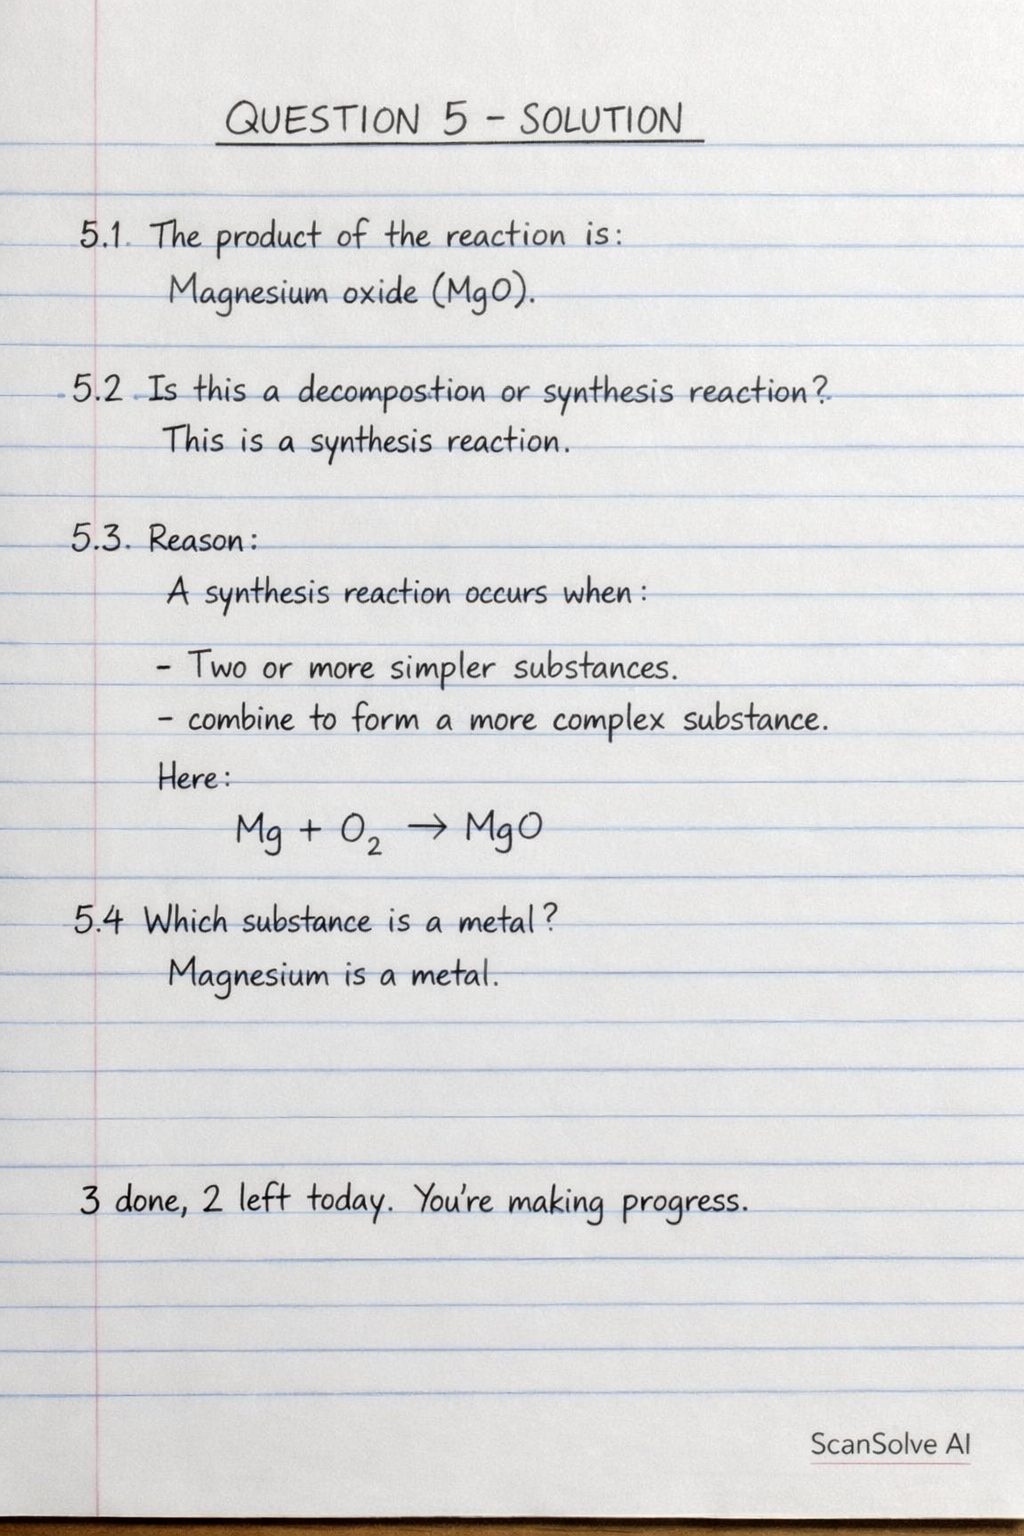 QUESTION 5 – SOLUTION
5.1. The product of the reaction is:
Magnesium oxide (MgO).
5.2. Is this a decompostion or synthesis reaction?
This is a synthesis reaction.
5.3. Reason:
A synthesis reaction occurs when:
– Two or more simpler substances.
– combine to form a more complex substance.
Here:
Mg + O₂ → MgO
5.4 Which substance is a metal?
Magnesium is a metal.
3 done, 2 left today. You're making progress.
ScanSolve AI